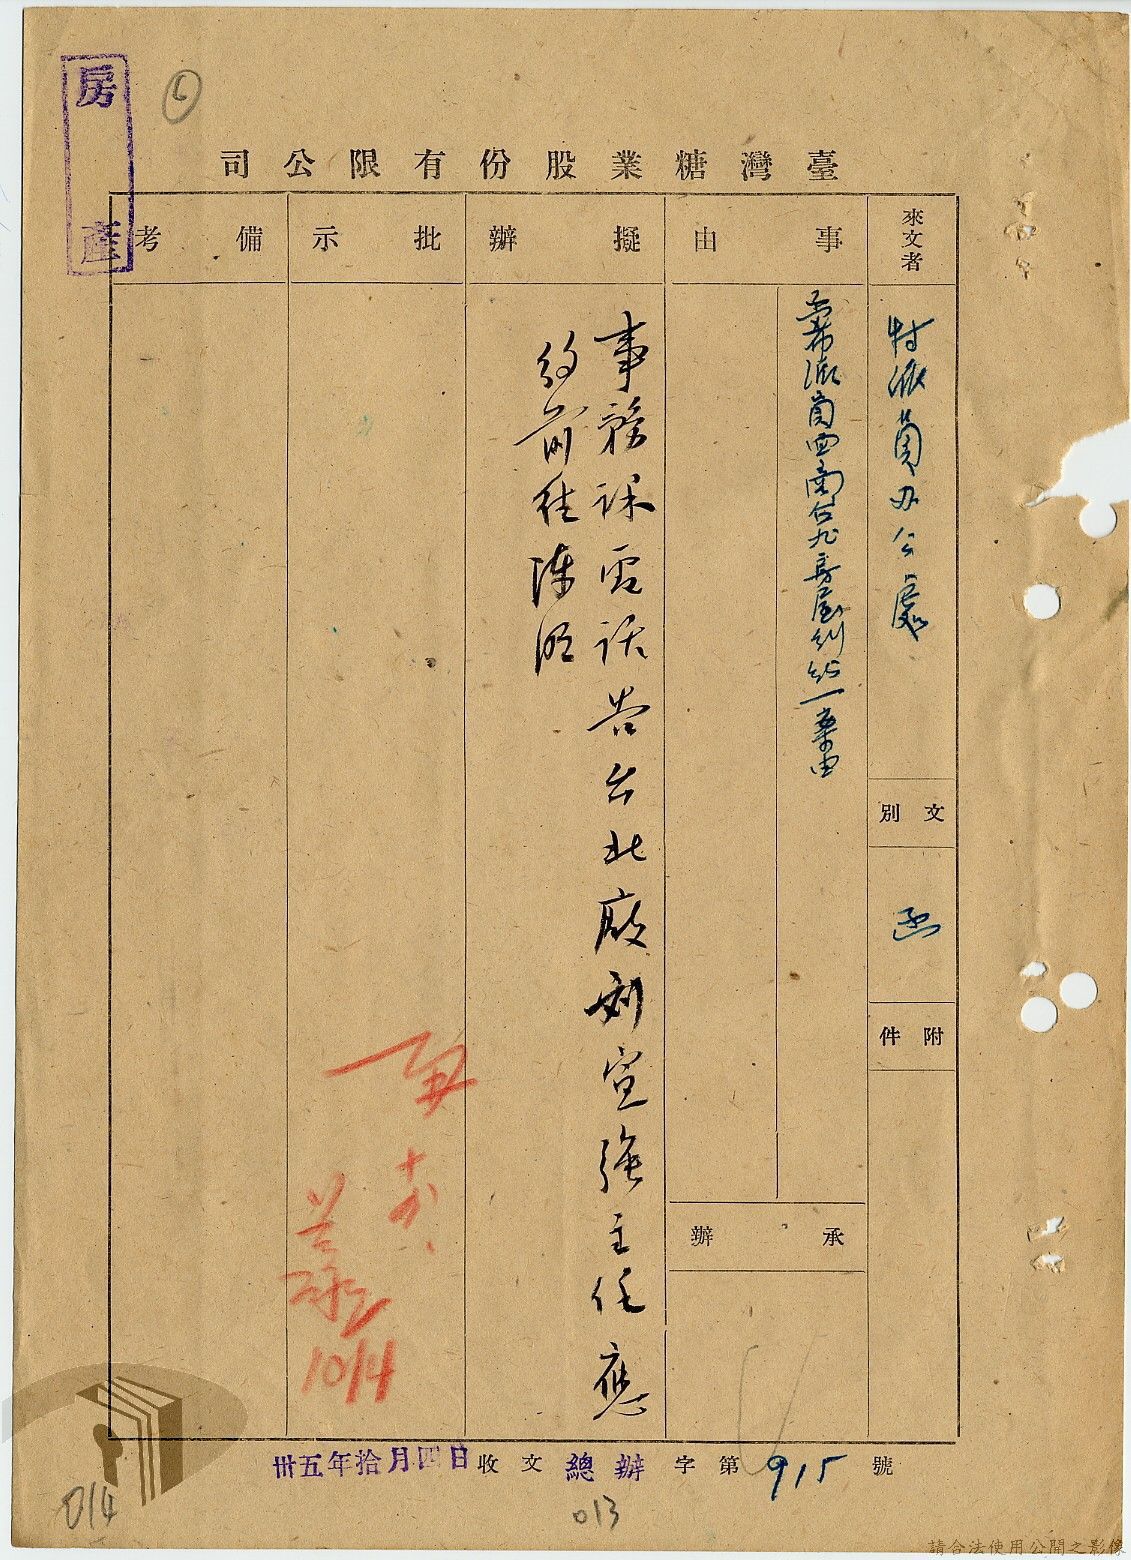 房產
臺灣糖業股份有限公司
來文者
特派員办公處
文別
函
附件
事由
房屋糾紛一案由
承辦
擬辦
事務課電話告台北廠劉宣強主任應
約前往陳明
批示
十、四、
10/4
備考
卅五年拾月四日收文總辦字第915號
013
014
請合法使用公開之影像